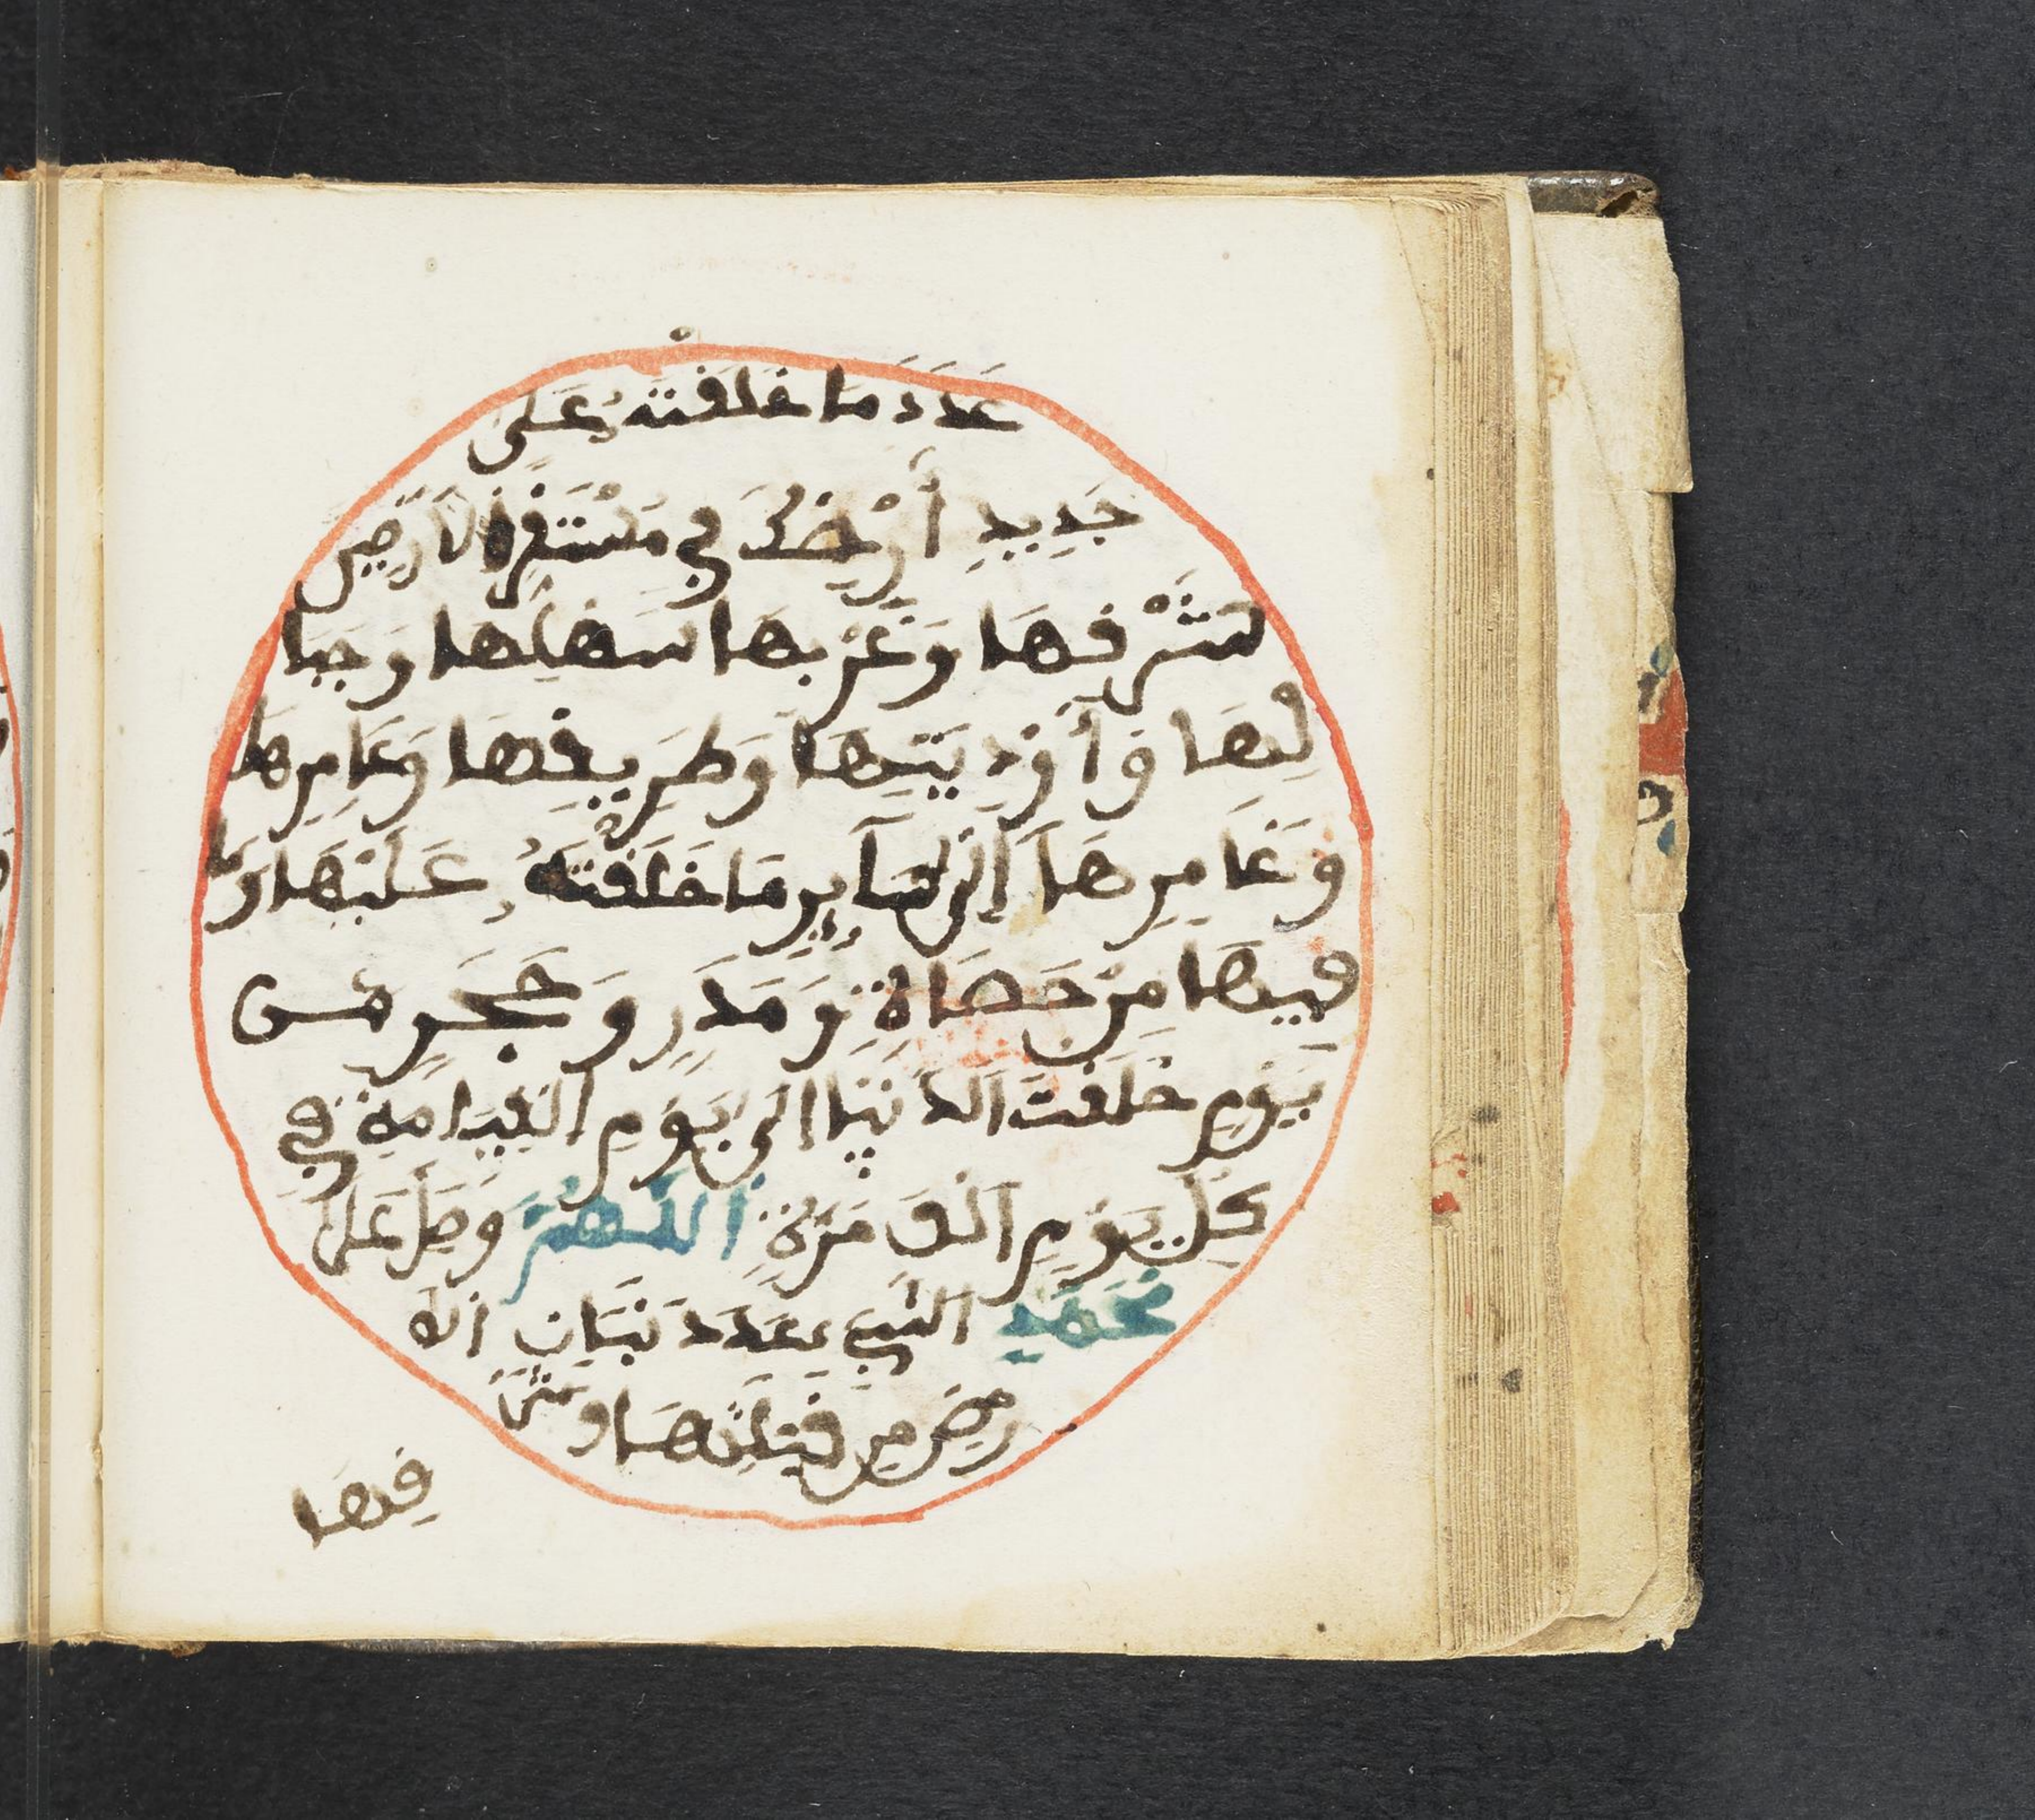 عَدَدَ مَا خَلَقْتَهُ عَلَى
جَدِيدِ أَرْضِكَ فِي مُسْتَقَرِّ الْأَرَضِينَ
شَرْقِهَا وَغَرْبِهَا سَهْلِهَا وَجِبَا
لِهَا وَأَوْدِيَتِهَا وَطَرِيقِهَا وَعَامِرِهَا
وَغَامِرِهَا إِلَى سَآيِرِ مَا خَلَقْتَهُ عَلَيْهَا وَمَا
فِيهَا مِنْ حَصَاةٍ وَمَدَرٍ وَحَجَرٍ مِنْ
يَوْمِ خَلَقْتَ الدُّنْيَا إِلَى يَوْمِ الْقِيَامَةِ فِي
كُلِّ يَوْمٍ أَلْفَ مَرَّةٍ اللَّهُمَّ وَصَلِّ عَلَى
مُحَمَّدٍ النَّبِيِّ عَدَدَ نَبَاتِ الْأَ
رْضِ مِن قِبْلَتِهَا وَشَرْ
قِهَا